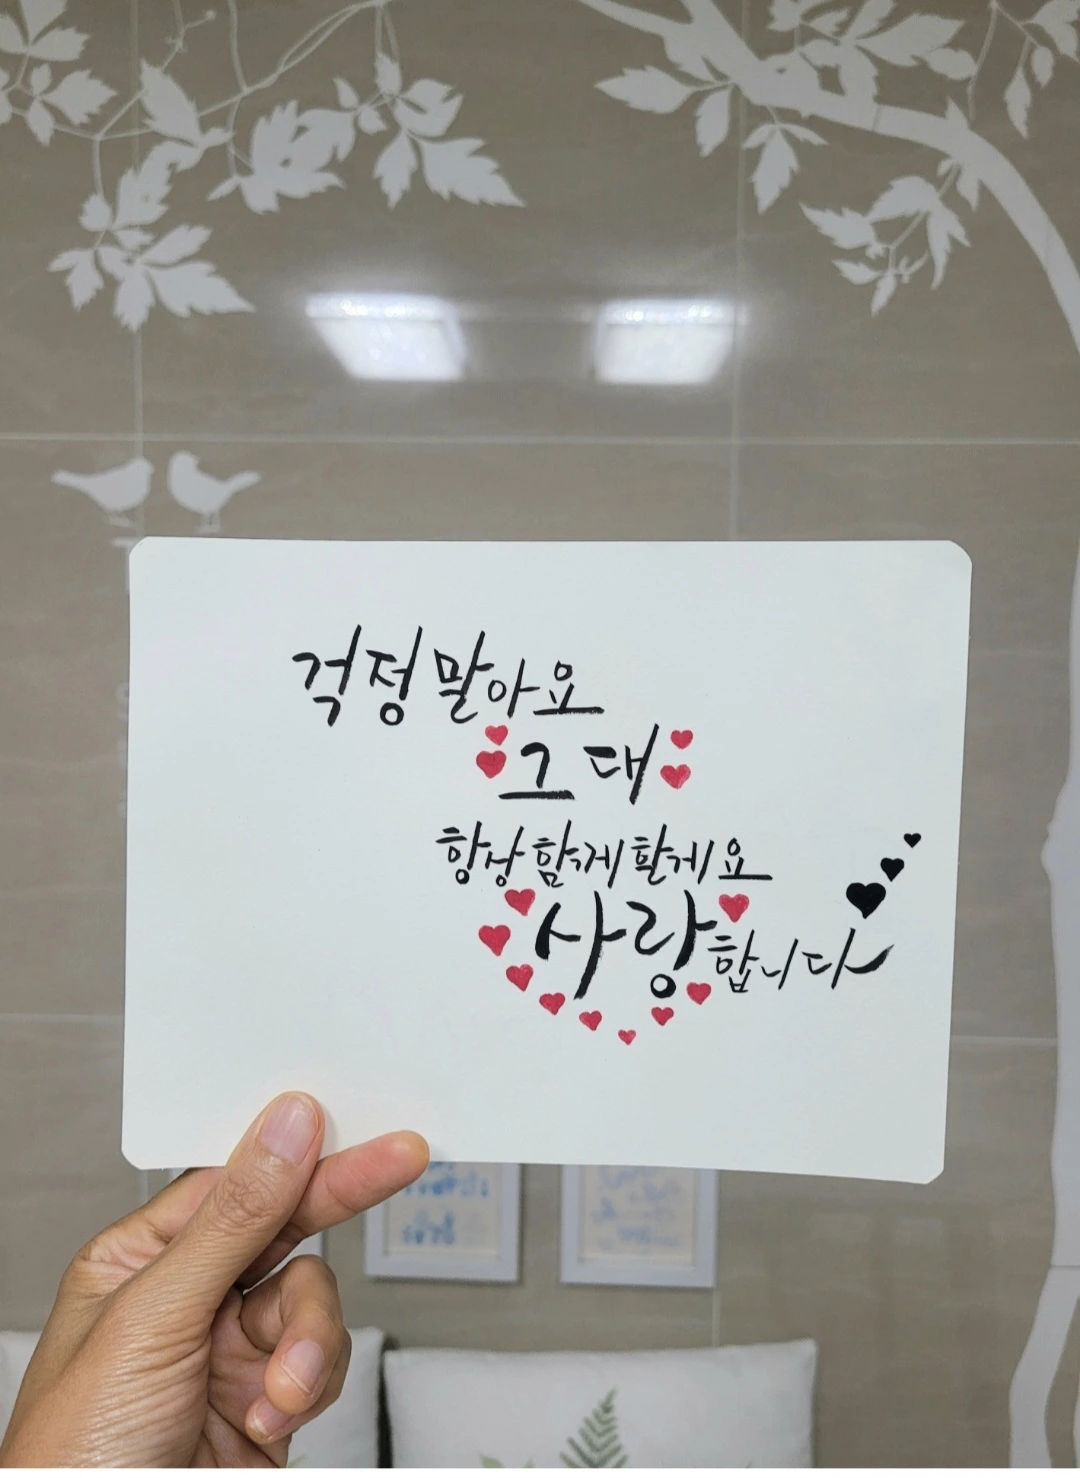 걱정 말아요
그대
항상 함께 할게요
사랑합니다